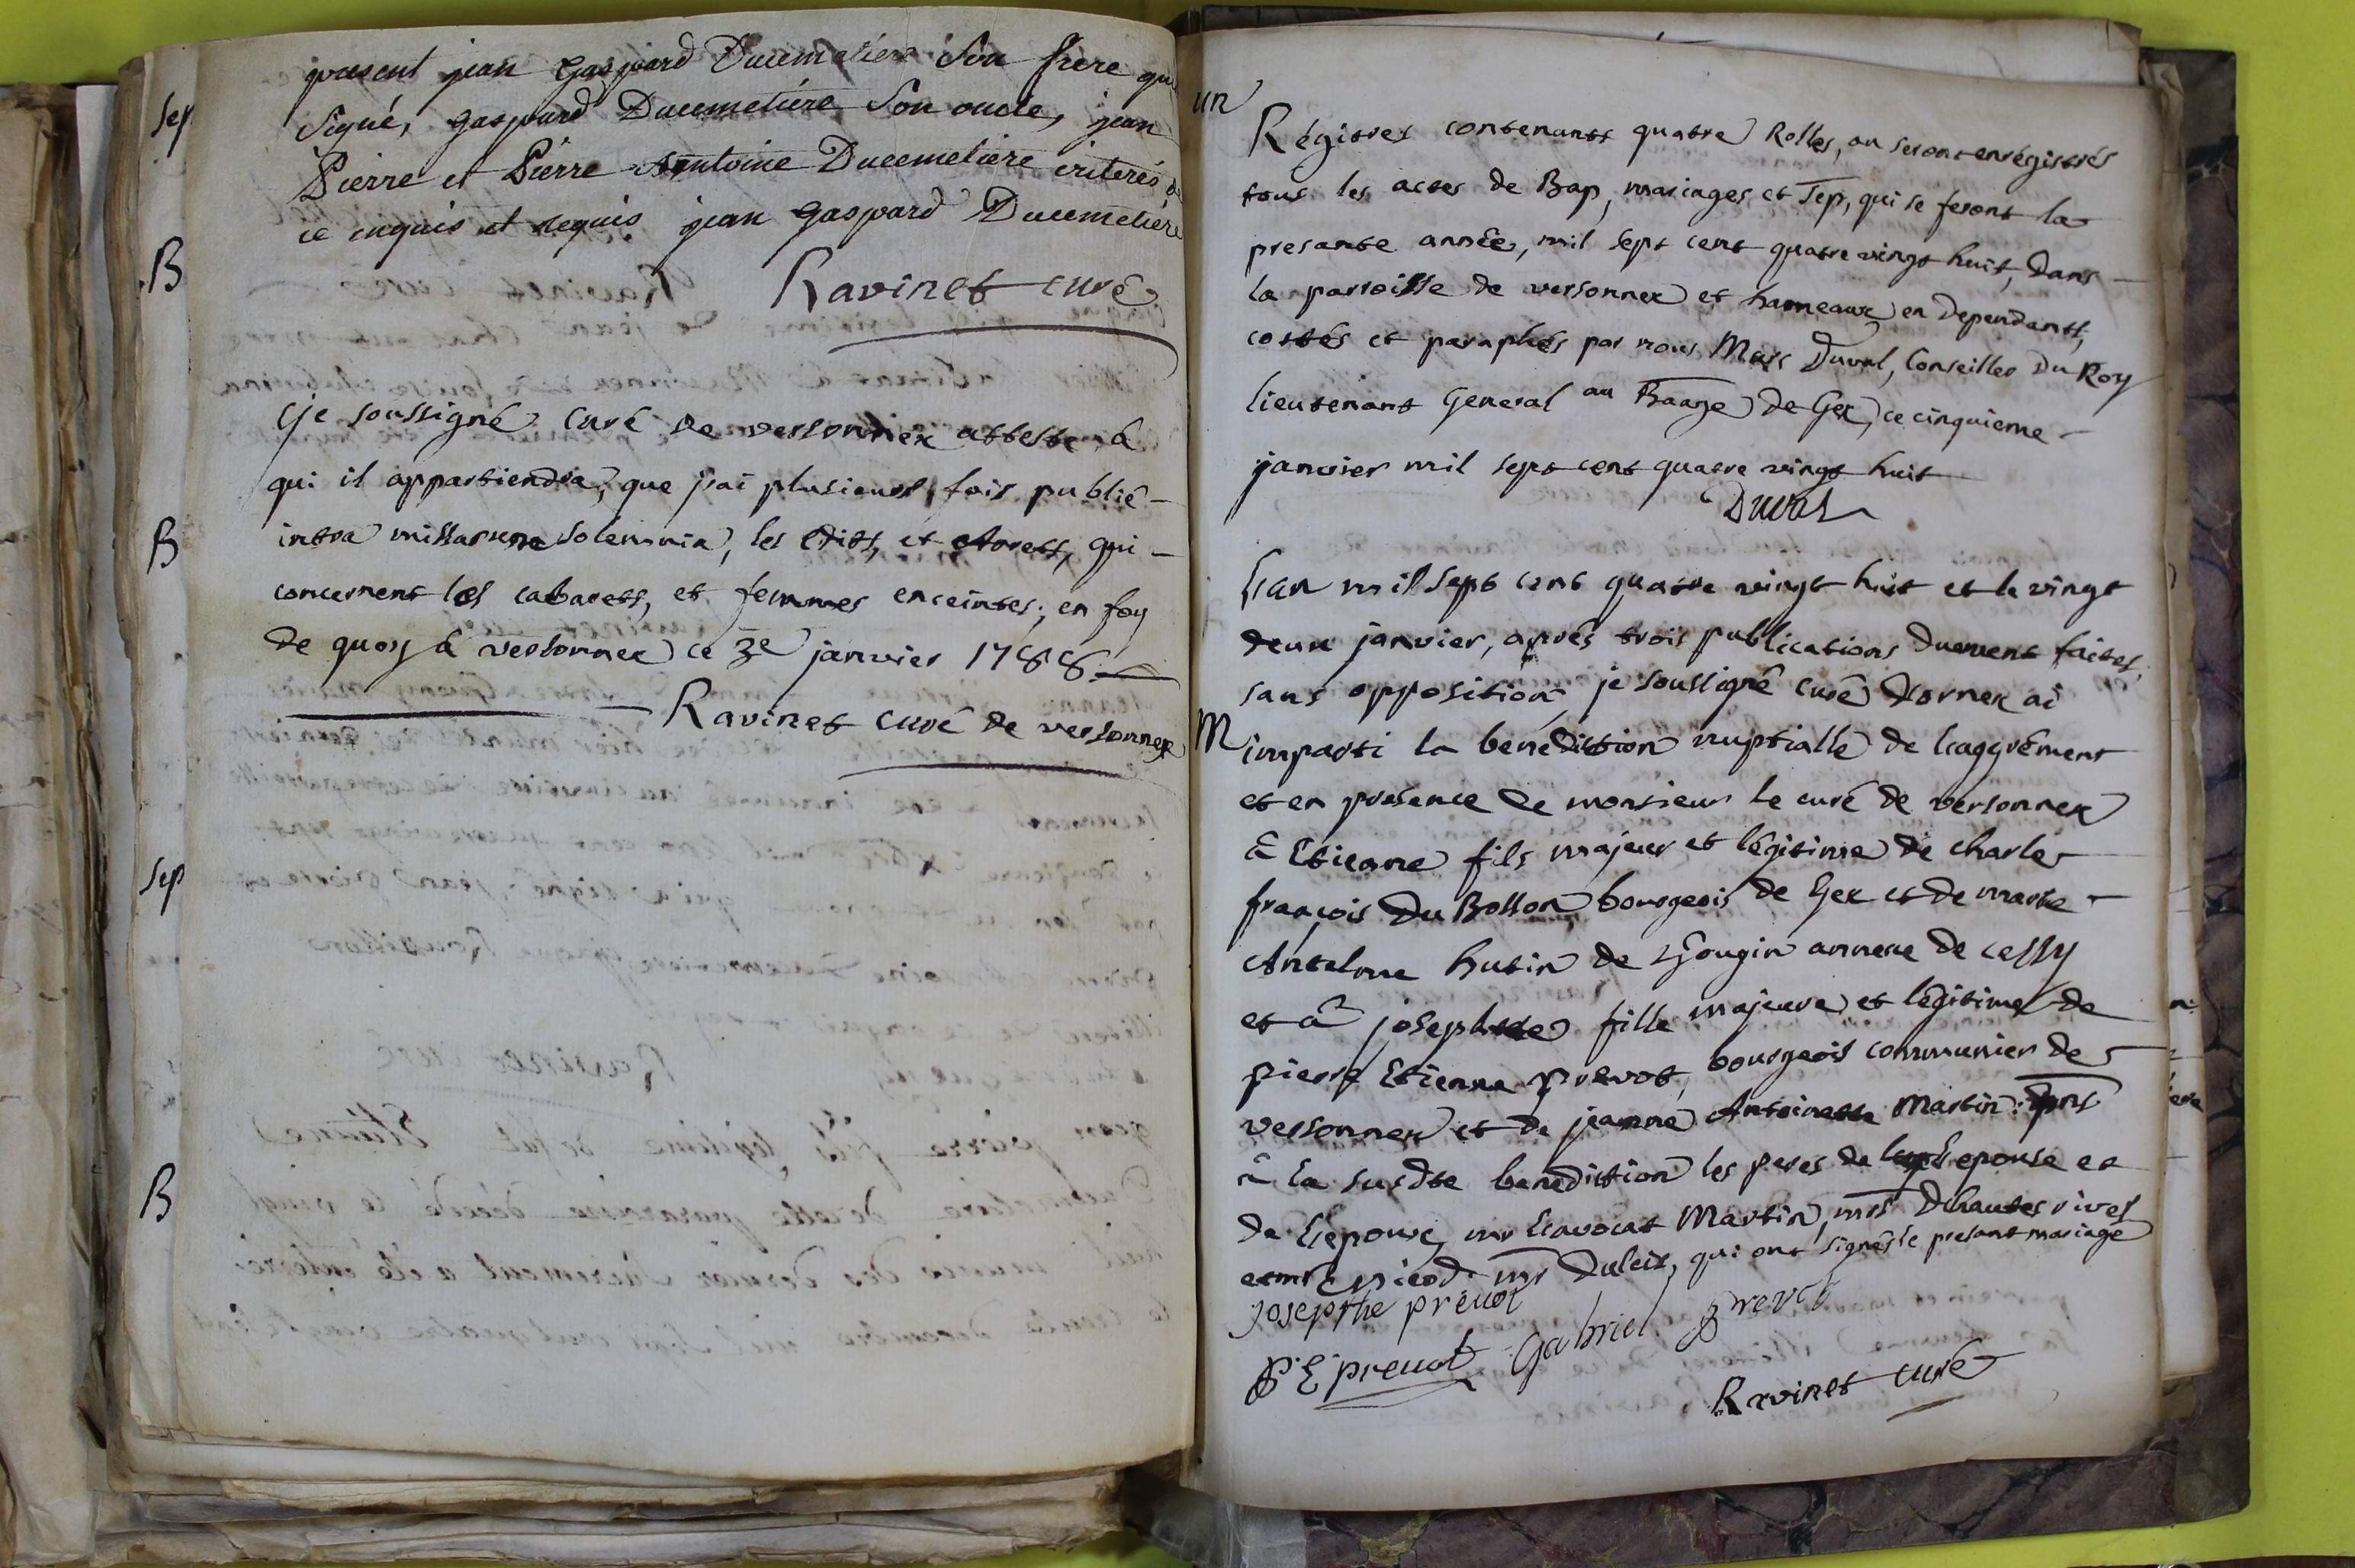 present jean Gaspard Ducimetiere Son frère qu
Signé, gaspard Ducimetiére Son oncle, jean
Pierre et Pierre Antoine Ducimetiere
ce enquis et requis jean Gaspard Ducimetiére
Ravinet curé
Sep
B
B
Sep
B
je soussigné curé de versonnex atteste à
qui il appartiendra, que j'ai plusieurs fois publié
intra missarum solemnia, les Edits, et Arrets, qui
concernent les cabarets, et femmes enceintes; en foy
de quoy à versonnex ce 3e janvier 1788
Ravinet curé de versonnex
un
Régitres contenants quatre Rolles, ou seront enrégistrés
tous les actes de Bap, mariages et Sep, qui se feront la
presante année, mil sept cent quatre vingt huit, dans
la parroisse de versonnex et hameaux en dependants,
cottés et paraphés par nous Marc Duval, Conseiller Du Roy
lieutenant General au Baage de Gex, ce cinquieme
janvier mil sept cent quatre vingt huit
Duval
L'an mil sept cent quatre vingt huit et le vingt
deux janvier, aprés trois publications duement faites
sans opposition, je soussigné curé d'ornex ai
M
imparti la benediction nuptialle de l'aggrément
et en presence de monsieur le curé de versonnex
à Etienne fils majeur et légitime de charle
françois Du Bosson bourgeois de Gex et de marie
Antelme hutin de annexe de cessy
et à josephte fille majeure et légitime de
pierre Etienne prevot, bourgeois communier de
versonnex et de jeanne Antoinette Martin: pnts
à la susdte benediction les peres de l'epouse et
de l'epoux, mr l'avocat Martin, mrs Dhauterives
et mr picod mr Duleit, qui ont signés le presant mariage
Josepthe prévot
P E prevot Gabriel prevot
Ravinet curé